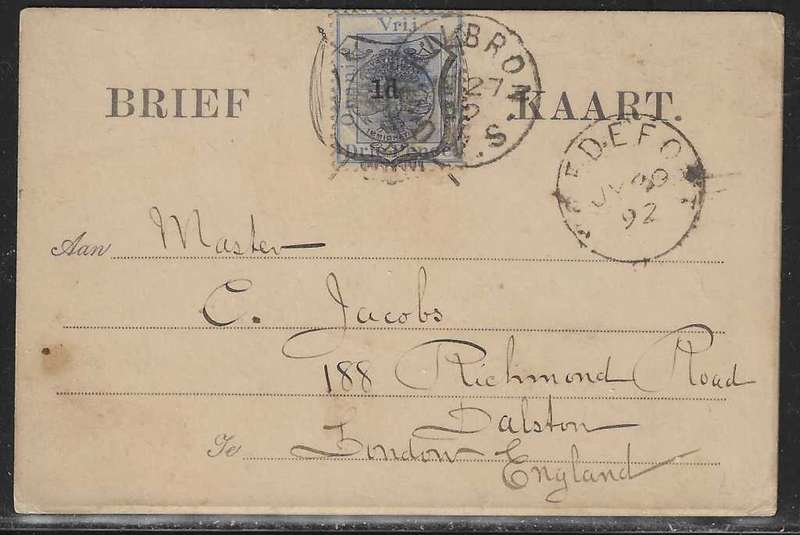 Vrij
BRIEF KAART.
1d
Drie Pence
27
O.V.S.
REDEFO
92
Aan Master
C. Jacobs
188 Richmond Road
Dalston
Te London
England